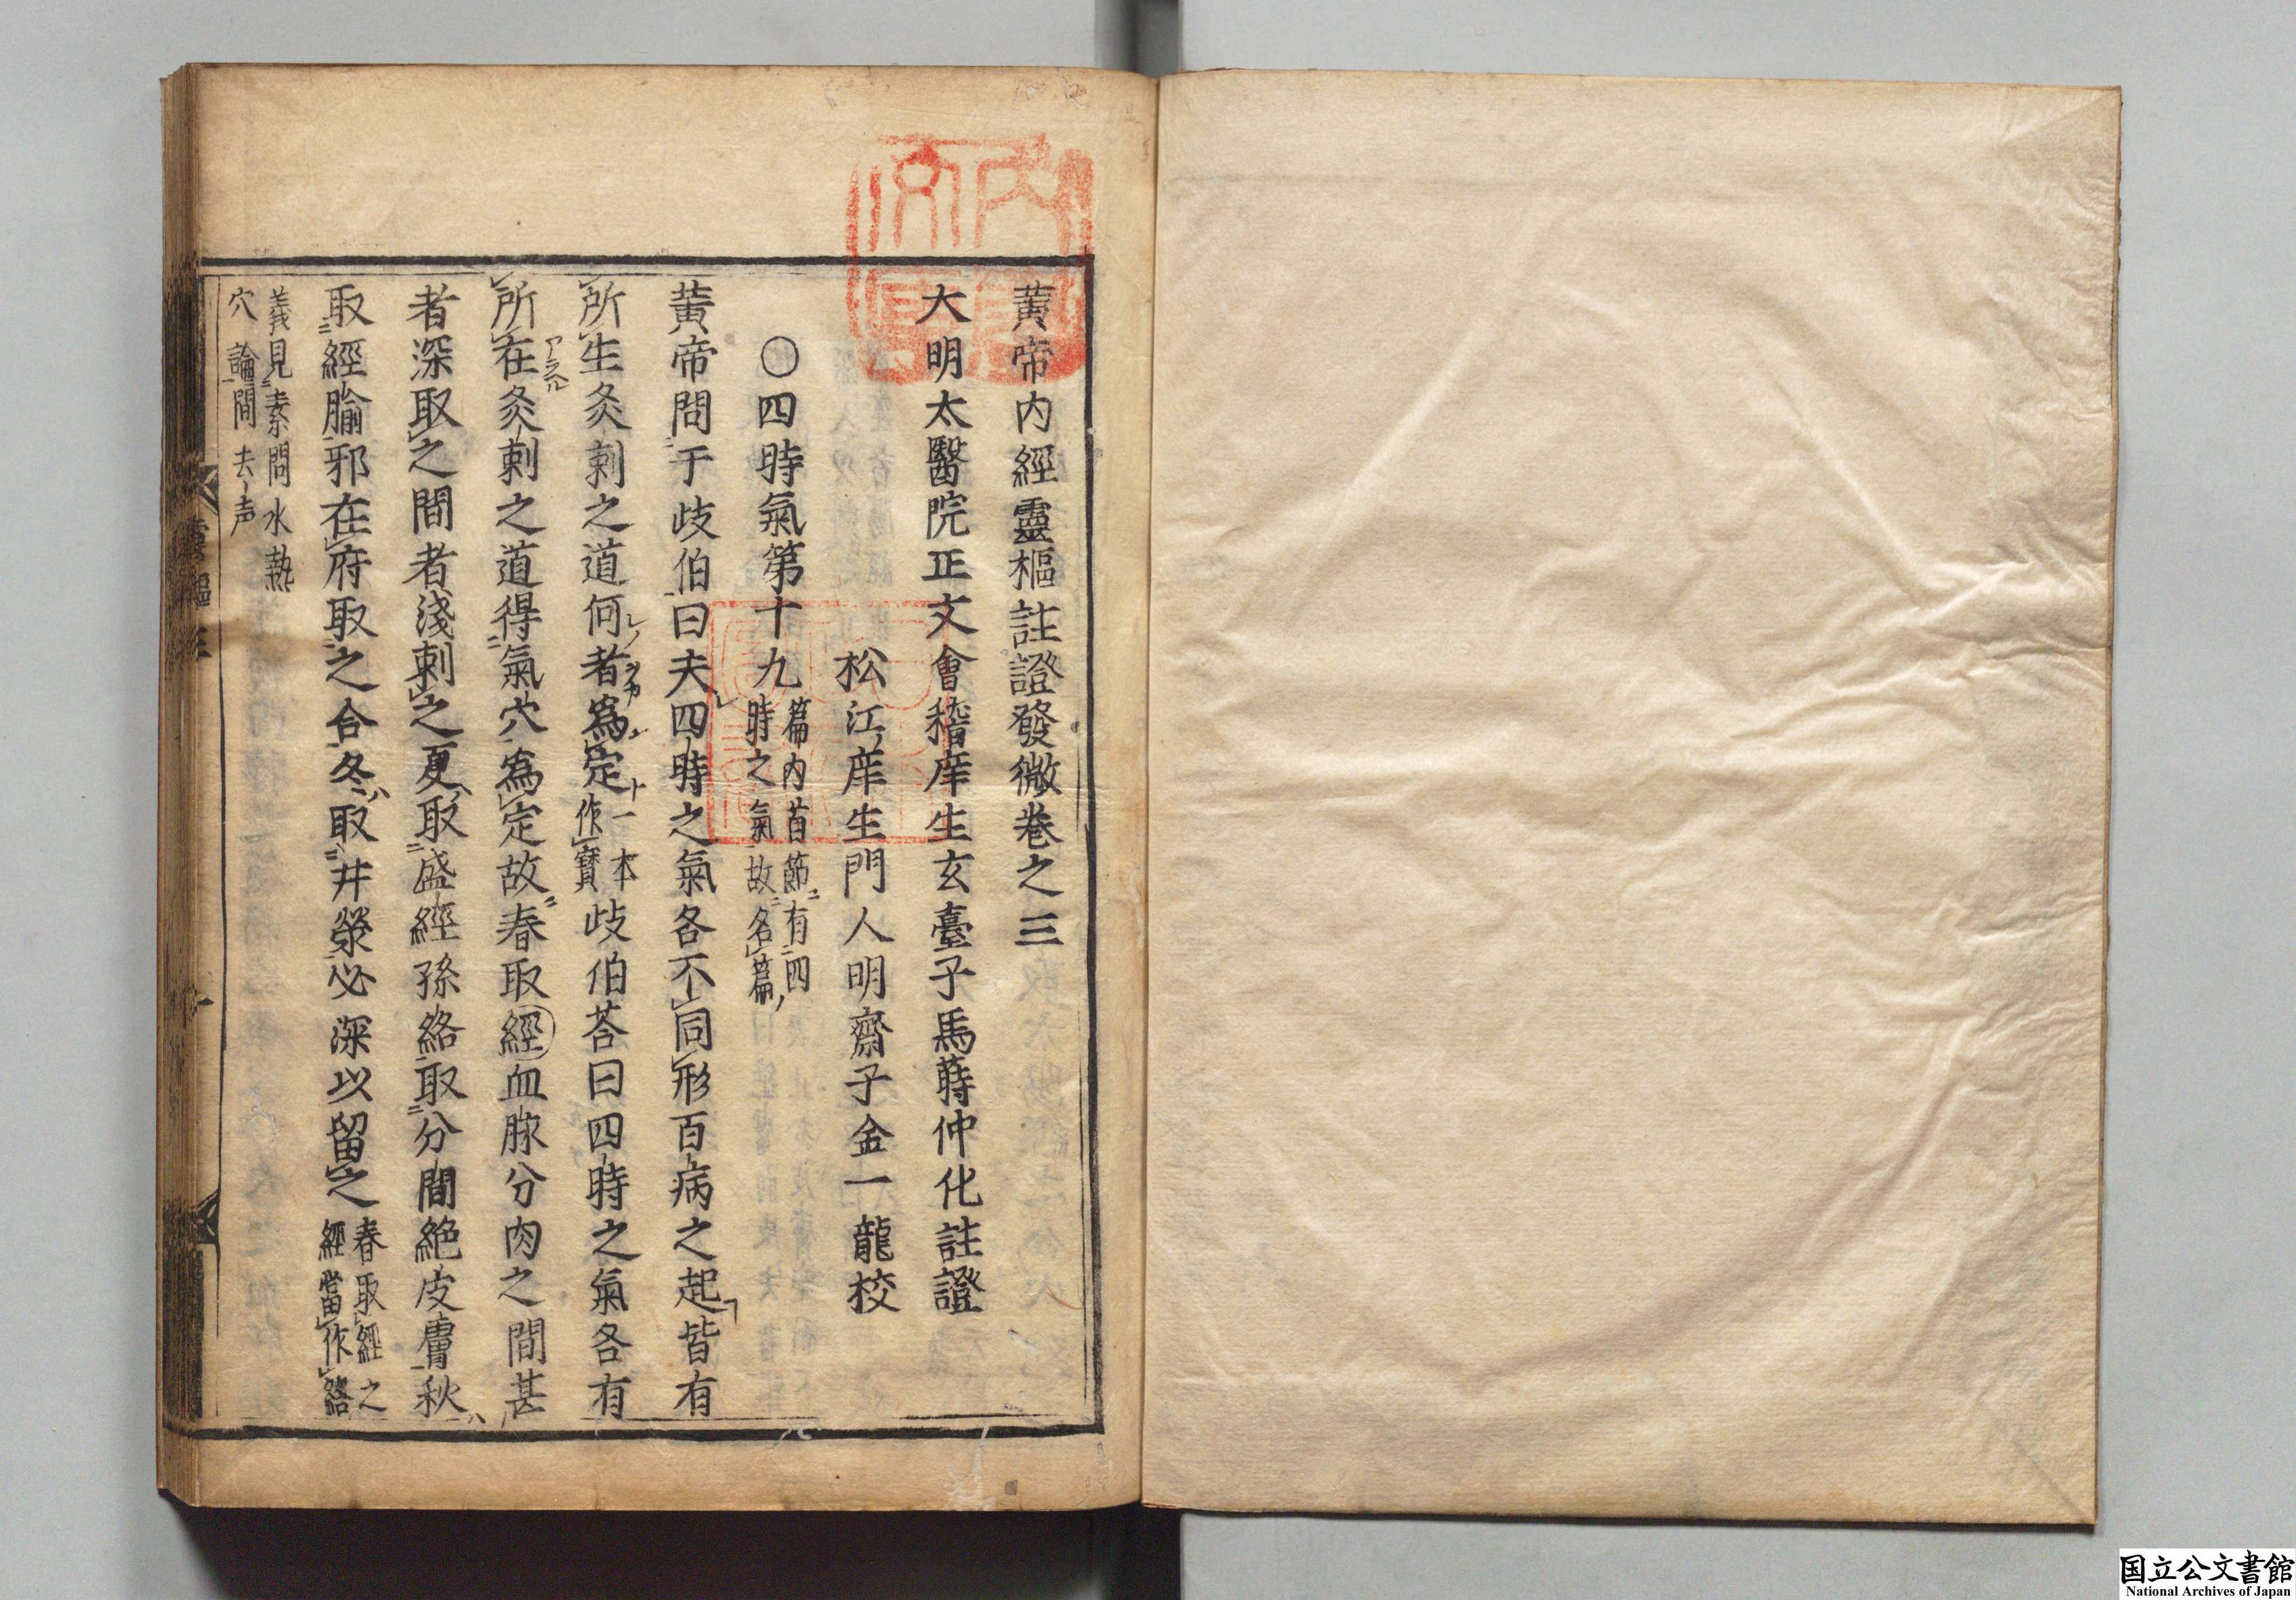 黃帝內經靈樞註證發微卷之三
大明太醫院正文會稽庠生玄臺子馬蒔仲化註證
松江庠生門人明齋子金一龍校
○四時氣第十九篇內首節有四時之氣故名篇
黃帝問于歧伯曰夫四時之氣各不同形百病之起皆有
所生灸刺之道何者爲定一本作寶歧伯荅曰四時之氣各有
所在灸刺之道得氣穴爲定故春取經血脉分肉之間甚
者深取之間者淺刺之夏取盛經孫絡取分間絶皮膚秋
取經腧邪在府取之合冬取井滎必深以留之春取經之經當作絡
義見素問水熱穴論間去声
国立公文書館
National Archives of Japan